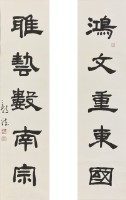 鴻文重東國
雅藝數南宗